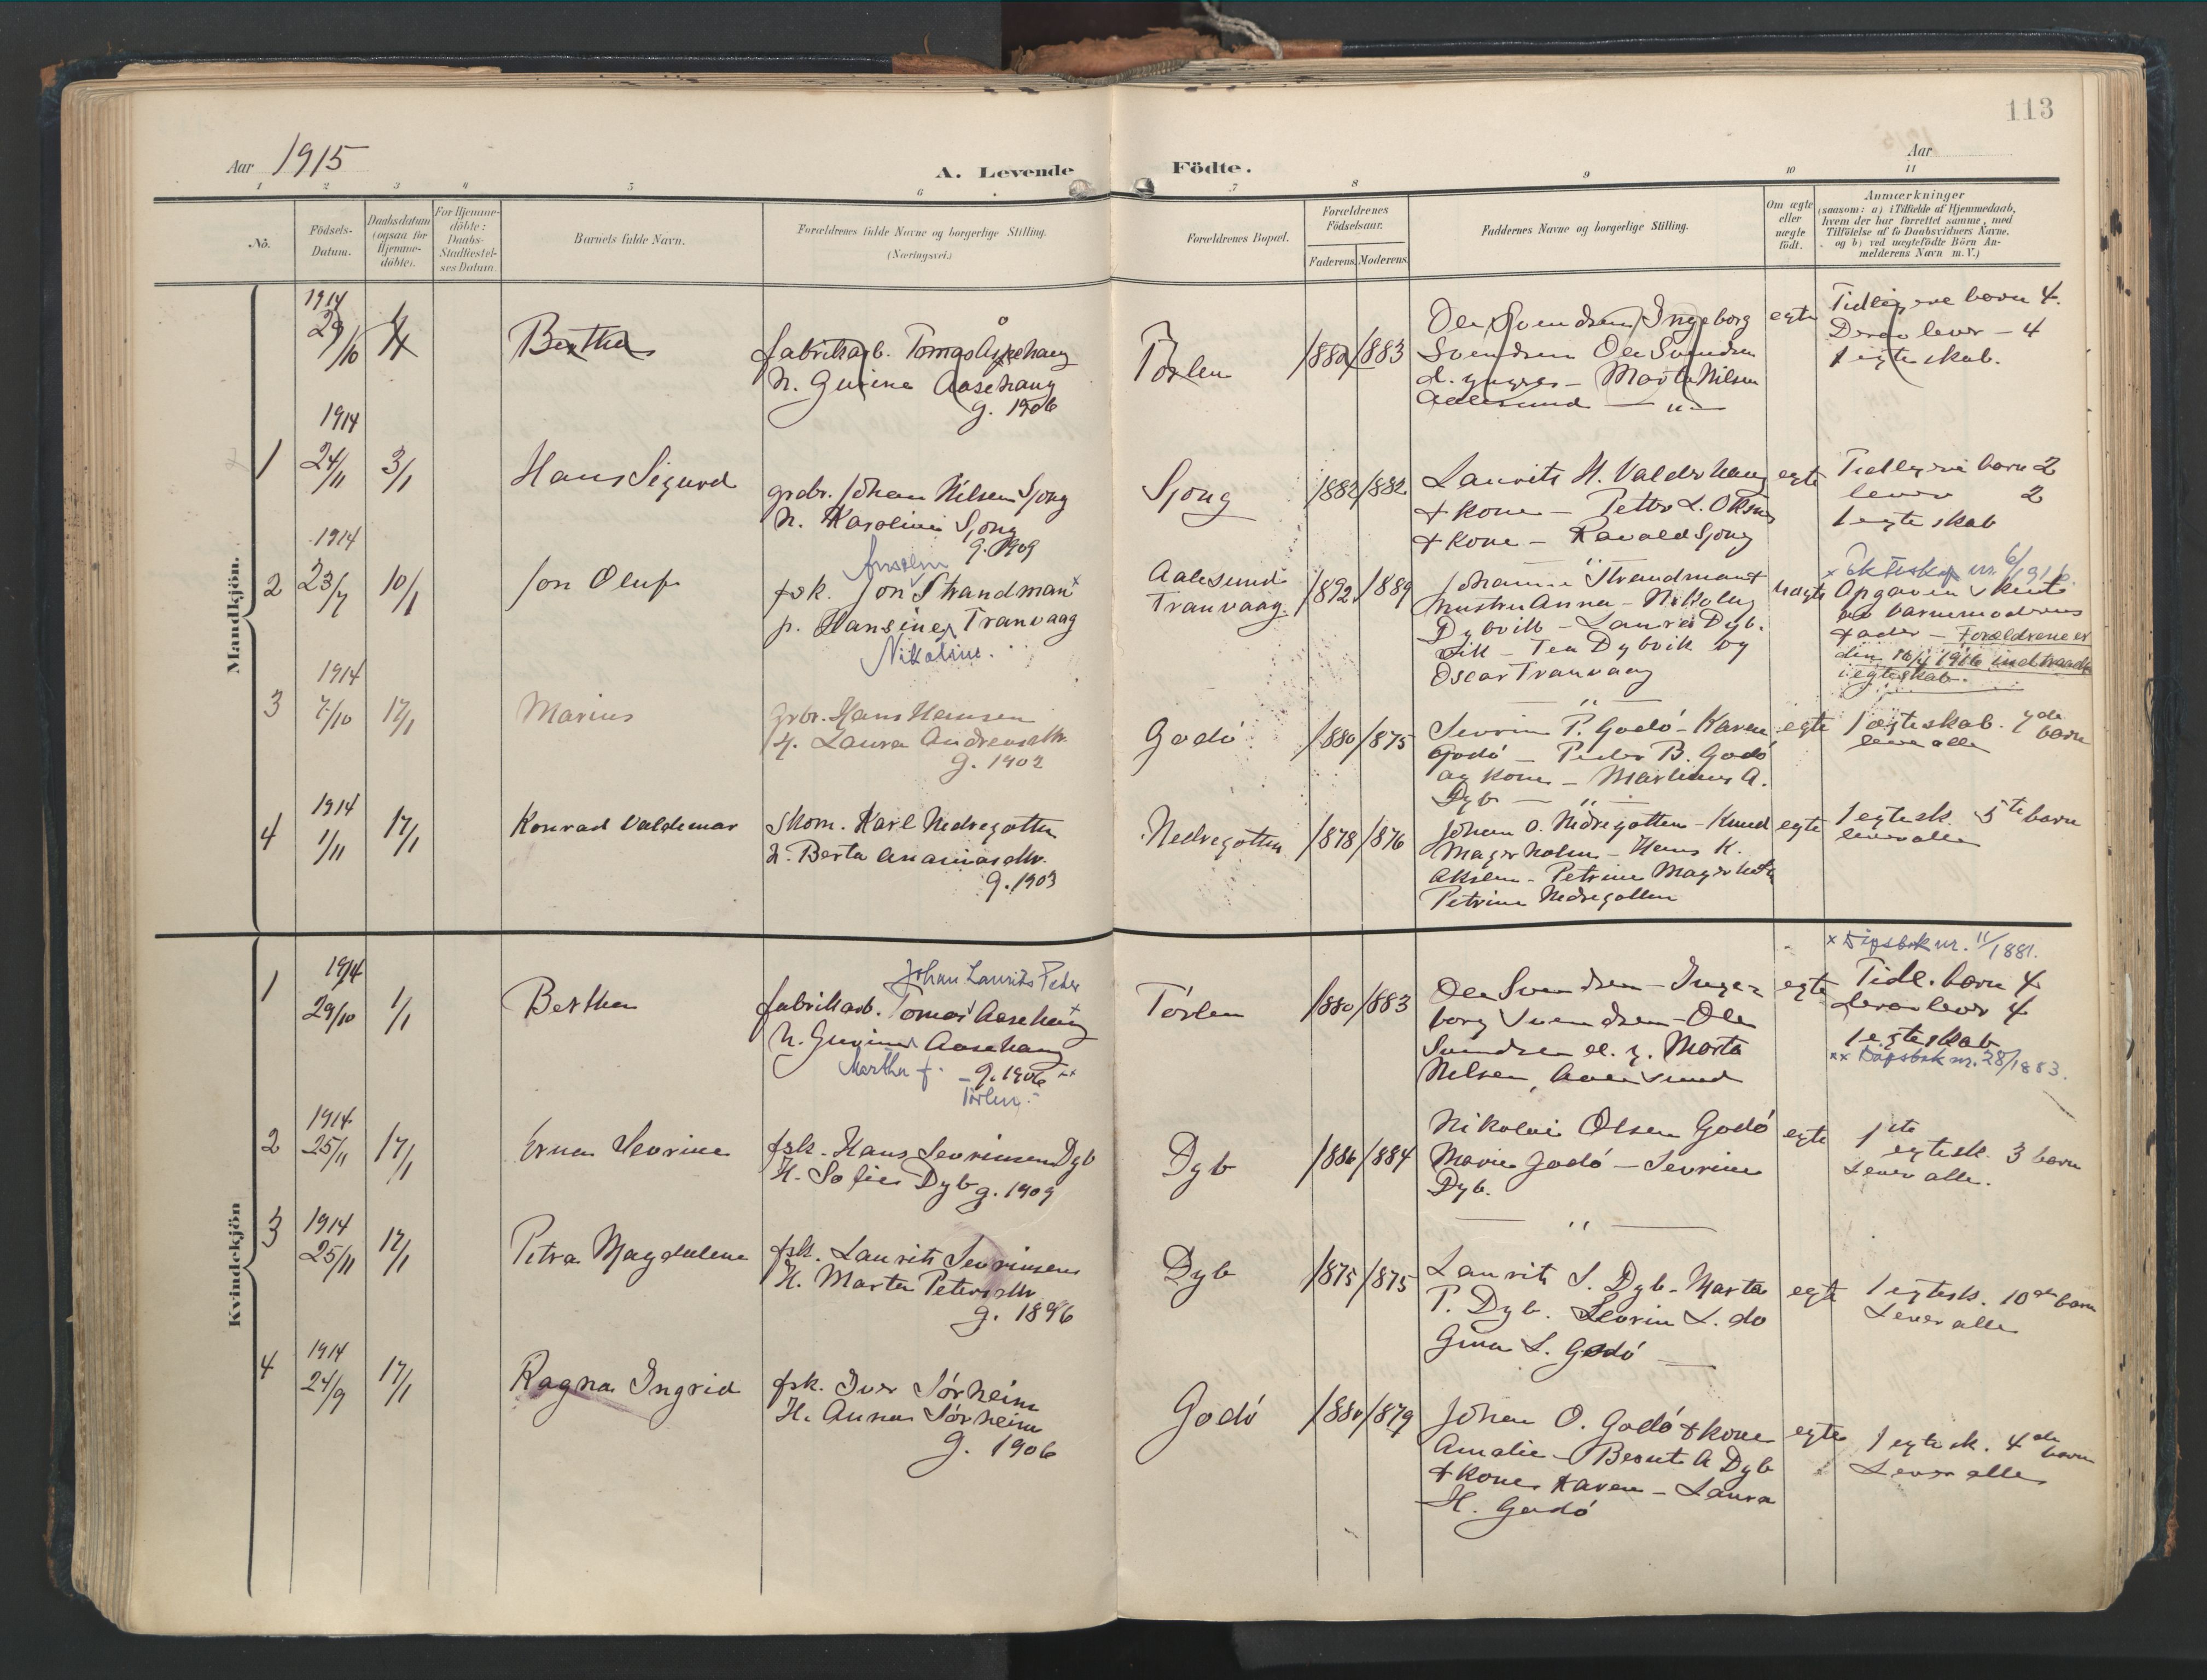 113
Aar 1915
A. Levende
Födte.
Aar
1 2 3 4 5 6 7 8 9 10 11
No.
Födsels-
Datum.
Daabsdatum
(ogsaa for
Hjemme-
döbte).
For Hjemme-
döbte:
Daabs-
Stadfæstel-
ses Datum.
Barnets fulde Navn.
Forældrenes fulde Navne og borgerlige Stilling.
(Næringsvei.)
Forældrenes Bopæl.
Forældrenes
Födselsaar.
Faderens. Moderens.
Faddernes Navne og borgerlige Stilling.
Om ægte
eller
uægte
födt.
Anmærkninger
(saasom: a) i Tilfælde af Hjemmedaab,
hvem der har forrettet samme, med
Tilföielse af to Daabsvidners Navne,
og b) ved uægtefödte Börn An-
melderens Navn m. V.)
Mandkjön.
1914
29/10
Berthe
fabrikarb. Tomas Aasehaug
h. Gurine Aasehaug
g. 1906
Törlen
1880 1883
Ole Svendsen Ingeborg
Svendsen Ole Svendsen
d. yngre – Marta Nilsen
Aalesund
egte
Tidligere barn 4.
Derav lever – 4
1 egteskab.
1
1914
24/11
3/1
Hans Sigurd
grdbr. Johan Nilsen Sjong
h. Karoline Sjong
g. 1909
Sjong
1882 1882
Laurits H. Valderhaug
+ kone – Petter L. Oksnes
+ kone – Ravald Sjong
egte
Tidligere barn 2
lever 2
1 egteskab
2
1914
23/7
10/1
Jon Oluf
Anselm
fsk. Jon Strandman x
p. Hansine Tranvaag
Nikoline.
Aalesund
Tranvaag.
1892 1889
Johanne Strandman +
hustru Anna – Nikolai
Dybvik – Laura Dyb.
vik – Tea Dybvik og
Oscar Tranvaag
uegte
Opgaven skeet
av barnemoderens
fader – Forældrene er
den 16/4 1916 indtraadt
i egteskab.
3
1914
7/10
17/1
Marius
grbr. Hans Hansen
H. Laura Andreasdtr.
g. 1902
Godö
1880 1875
Sevrin P. Godö – Karen
Godö – Peder B. Godö
og kone – Martinus A.
Dyb
egte
1 egteskab. 7de
barn
lever alle
4
1914
1/11
17/1
Konrad Valdemar
Skom. Karl Nedregotten
H. Berta Ananiasdtr.
g. 1903
Nedregotten
1878 1876
Johan O. Nedregotten – Knud
Magerholm – Hans K.
Akslen – Petrine Magerholm
Petrine Nedregotten
egte
1 egtesk. 5te barn
lever alle
Kvindekjön
1
1914
29/10
1/1
Berthe
Johan Laurits Peder
fabrikarb. Tomas Aasehaug x
h. Gurine Aasehaug
Martha f. – g. 1906 xx
Törlen.
Törlen
1880 1883
Ole Svendsen – Inge-
borg Svendsen – Ole
Svendsen d. y. Marta
Nilsen, Aalesund
egte
x Dåpsbok nr. 11/1881.
Tidl. barn 4
derav lever 4
1 egteskab
xx Dåpsbok nr. 28/1883.
2
1914
25/11
17/1
Erna Sevrine
fsk. Hans Sevrinsen Dyb
H. Sofie Dyb g. 1909
Dyb
1886 1884
Nikolai Olsen Godö
Marie Godö – Sevrine
Dyb.
egte
1ste
egtesk. 3 barn
Lever alle.
3
1914
25/11
17/1
Petra Magdalene
fsk. Laurits Sevrinsen
H. Marta Petersdtr
g. 1896
Dyb
1875 1875
Laurits S. Dyb – Marta
P. Dyb. Sevrin L. do
Gina L. Godö
egte
1 egtesk. 10de barn
Lever alle
4
1914
24/9
17/1
Ragna Ingrid
fsk. Iver Sörheim
H. Anna Sörheim
g. 1906
Godö
1880 1879
Johan O. Godö + kone
Amalie – Bernt A Dyb
+ kone Karen – Laura
H. Godö
egte
1 egtesk. 4de
barn
Lever alle